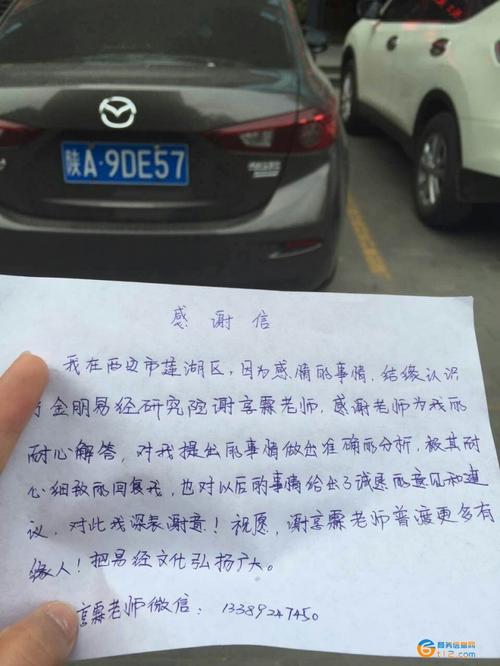 陕A·9DE57
感谢信
我在西安市莲湖区,因为感情的事情,结缘认识
了金明易经研究院谢享霖老师,感谢老师为我的
耐心解答,对我提出的事情做出准确的分析,极其耐
心细致的回复我,也对以后的事情给出了诚恳的意见和建
议,对此我深表谢意!祝愿,谢享霖老师普渡更多有
缘人!把易经文化弘扬广大。
享霖老师微信:13389247450
商务信息网
6t12.com